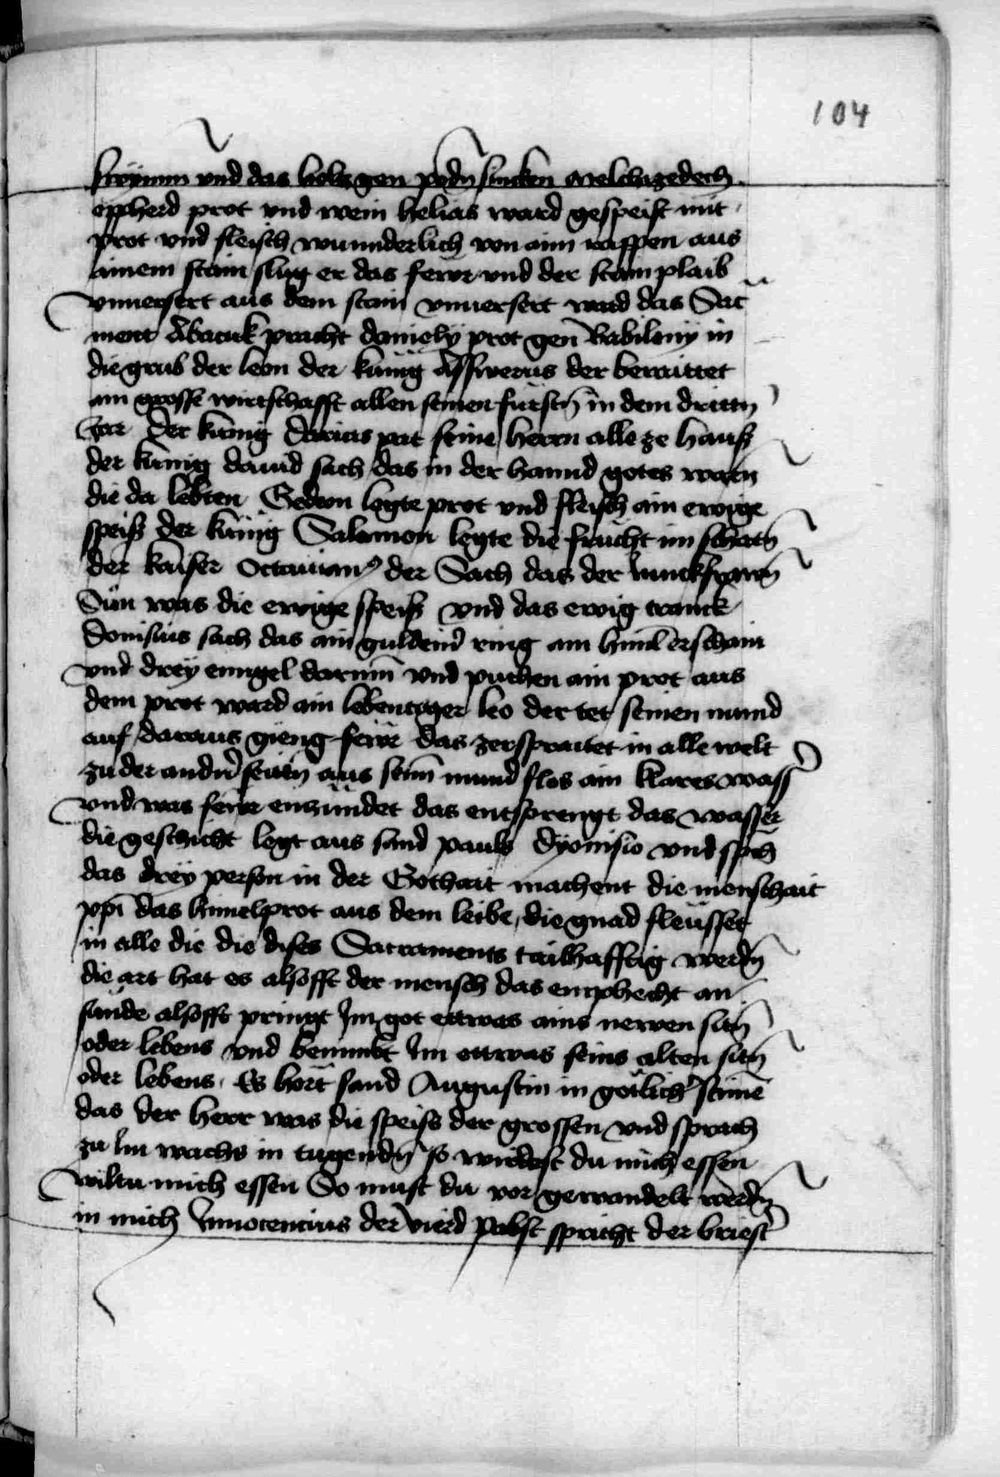 104
swymm vnd das holcz gen podn̄ sincken Melchizedech
oppherd prot vnd wein helias ward gespeist mit
prot vnd fleisch wunnderlich von aim rappen aus
ainem stain slug er das fewr vnd der stain plaib
vnuersert aus dem stain vnuersert ward das Sac̄
ment Abacuk pracht daniely prot gen Babilony in
die grub der leon der kunig Asswerus der beraittet
ain grosse wirtschafft allen seinen furstn̄ in dem drittn̄
Jar Der kunig darius pat seine herrn alle ze haus
der kunig dauid sach das in der hannd gotes warn̄
die da lebten Gedeon legte prot vnd fleisch ain ewige
speiß der kunig Salamon legte die frucht im schatn̄
der kaiser Octauian9 der Sach das der Junckfrawn̄
Sün was die ewige speiß vnd das ewig tranck
Donisius sach das ain guldein̄ ring am himel erschain
vnd drey enngel darum̄ vnd puchen ain prot aus
dem prot ward ain lebentiger leo der tet seinen mund
auf daraus gieng fewr das zerspraitet in alle welt
zu der andn̄ seittn̄ aus seim̄ mund flos ain klares wass̄
vnd was fewr enzundet das entsprengt das wasser
die geschicht legt aus sand pauls Dyonisio vnd sp̄ch
das drey person in der Gothait machent die menschait
xp̄i das himelprot aus dem leibe, die gnad fleusset
in alle die die dises Sacraments tailhafftig werdn̄
die art hat es alsofft der mensch das emphecht an
sunde alsofft pringt Im got ettwas ains newen sitn̄
oder lebens vnd benimbt Im ettwas seins alten sitn̄
oder lebens. Es hort sand Augustin in gotlich̄ stime
das der herr was die speise der grossen vnd sprach
zu Im wachs in tugendn̄ so wirdest du mich essen
wiltu mich essen So must du vor gewandelt werdn̄
in mich Innocencius der vierd pabst spricht der briest̄